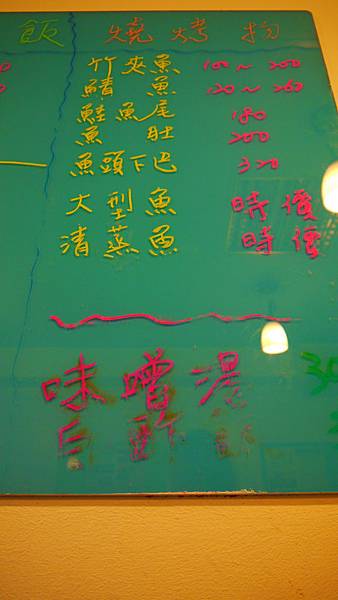 飯 燒烤物
竹夾魚 100~200
鯖魚 120~260
鮭魚尾 180
魚肚 200
魚頭下巴 320
大型魚 時價
清蒸魚 時價
味噌湯 30
白